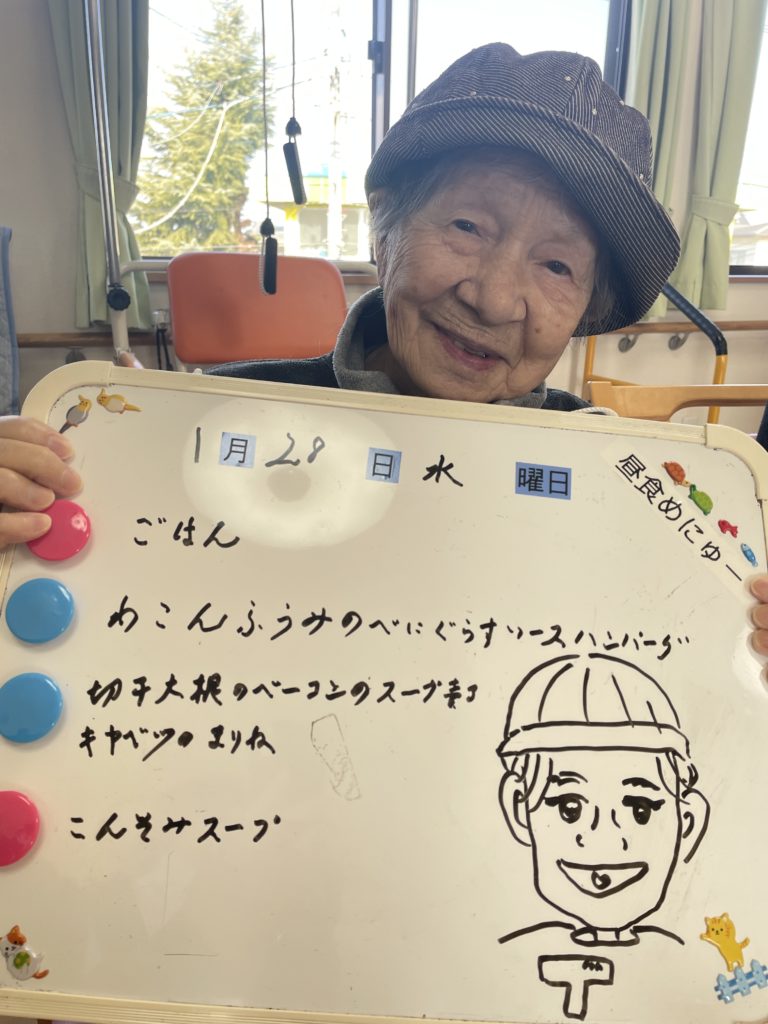 1月28日 水 曜日
昼食めにゅー
ごはん
わこんふうみのべにぐらすソースハンバーグ
切干大根のベーコンのスープ煮
キャベツのまりね
こんそみスープ